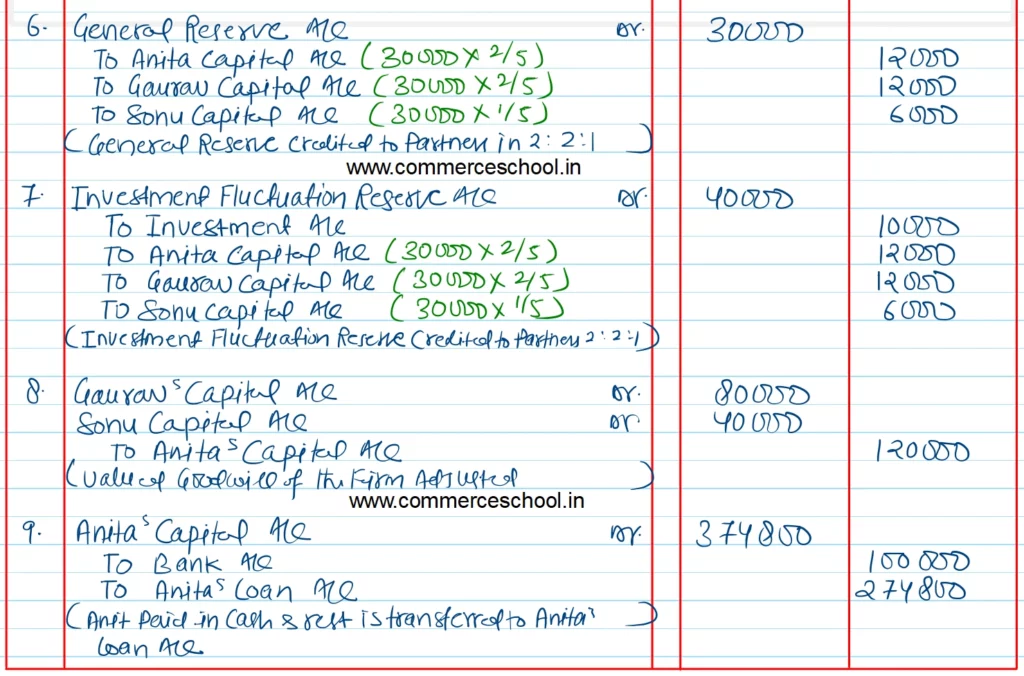 6. General Reserve A/c Dr. 30000
To Anita Capital A/c (30000 x 2/5) 12000
To Gaurav Capital A/c (30000 x 2/5) 12000
To Sonu Capital A/c (30000 x 1/5) 6000
(General Reserve Credited to Partners in 2:2:1)
www.commerceschool.in
7. Investment Fluctuation Reserve A/c Dr. 40000
To Investment A/c 10000
To Anita Capital A/c (30000 x 2/5) 12000
To Gaurav Capital A/c (30000 x 2/5) 12000
To Sonu Capital A/c (30000 x 1/5) 6000
(Investment Fluctuation Reserve Credited to Partners 2:2:1)
8. Gaurav's Capital A/c Dr. 80000
Sonu Capital A/c Dr. 40000
To Anita's Capital A/c 120000
(Value of Goodwill of the Firm Adjusted)
www.commerceschool.in
9. Anita's Capital A/c Dr. 374800
To Bank A/c 100000
To Anita's Loan A/c 274800
(Amt Paid in Cash & rest is transferred to Anita's)
Loan A/c